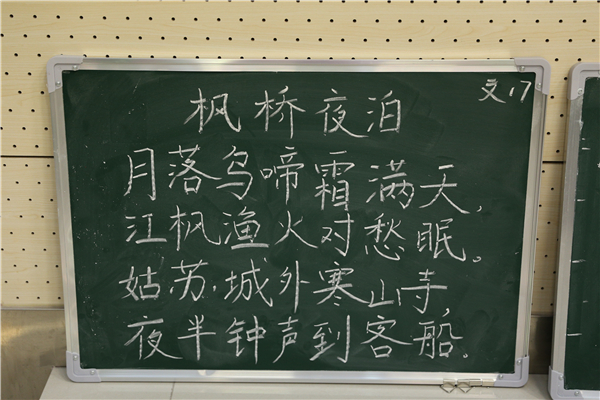 文17
枫桥夜泊
月落乌啼霜满天,
江枫渔火对愁眠。
姑苏城外寒山寺,
夜半钟声到客船。